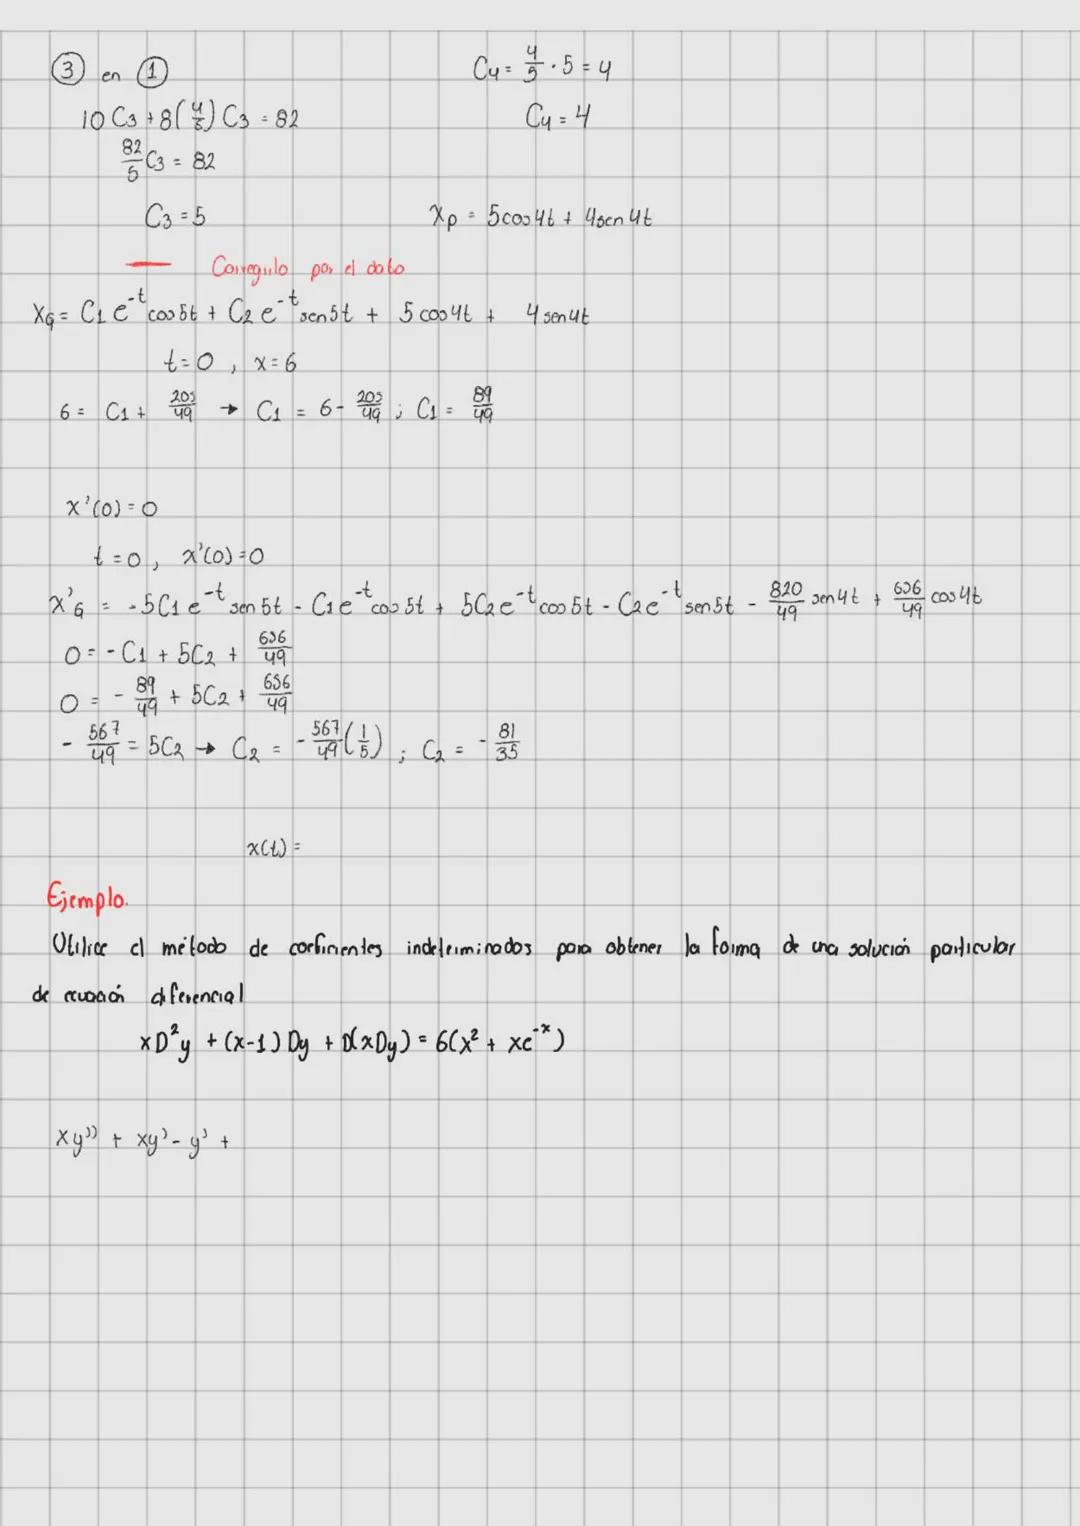 ③ en ①
C4 = 4/5 · 5 = 4
10 C3 + 8(4/5) C3 = 82
C4 = 4
82/5 C3 = 82
C3 = 5
Xp = 5cos4t + 4sen4t
Corregirlo por el dato
XG = C1 e^-t cos5t + C2 e^-t sen5t + 5cos4t + 4sen4t
t=0, x=6
6 = C1 + 205/49 → C1 = 6 - 205/49 ; C1 = 89/49
x'(0) = 0
t=0, x'(0)=0
x'G = -5C1 e^-t sen5t - C1e^-t cos5t + 5C2e^-t cos5t - C2e^-t sen5t - 820/49 sen4t + 656/49 cos4t
0 = -C1 + 5C2 + 656/49
0 = -89/49 + 5C2 + 656/49
-567/49 = 5C2 → C2 = -567/49 (1/5) ; C2 = -81/35
x(t) =
Ejemplo.
Utilice el método de coeficientes indeterminados para obtener la forma de una solución particular
de ecuación diferencial
xD²y + (x-1)Dy + D(xDy) = 6(x² + xe^-x)
xy'' + xy' - y' +